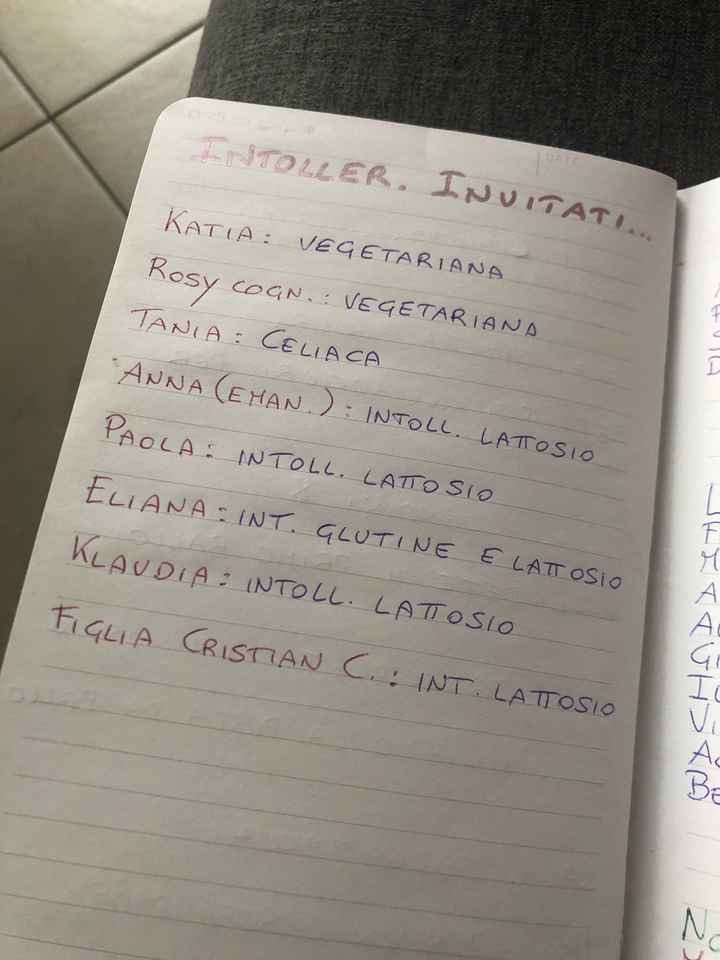 DATE
INTOLLER. INVITATI...
KATIA: VEGETARIANA
ROSY COGN.: VEGETARIANA
TANIA: CELIACA
ANNA (EMAN.): INTOLL. LATTOSIO
PAOLA: INTOLL. LATTOSIO
ELIANA: INT. GLUTINE E LATTOSIO
KLAUDIA: INTOLL. LATTOSIO
FIGLIA CRISTIAN C.: INT. LATTOSIO